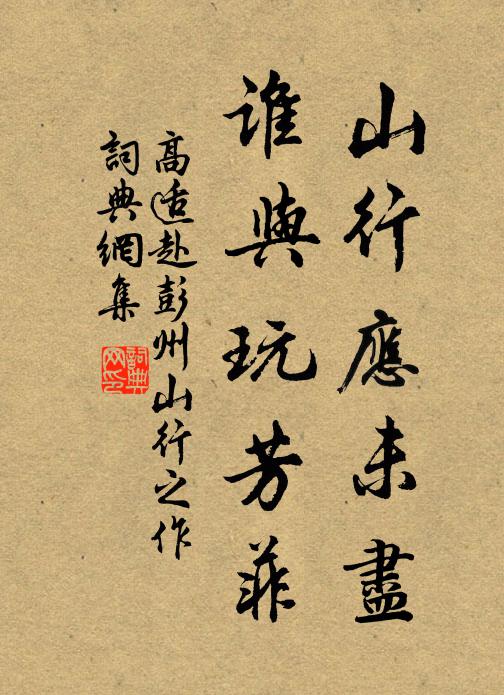 山行應未盡
誰與玩芳菲
高適赴彭州山行之作
詞典網集
詞典网印